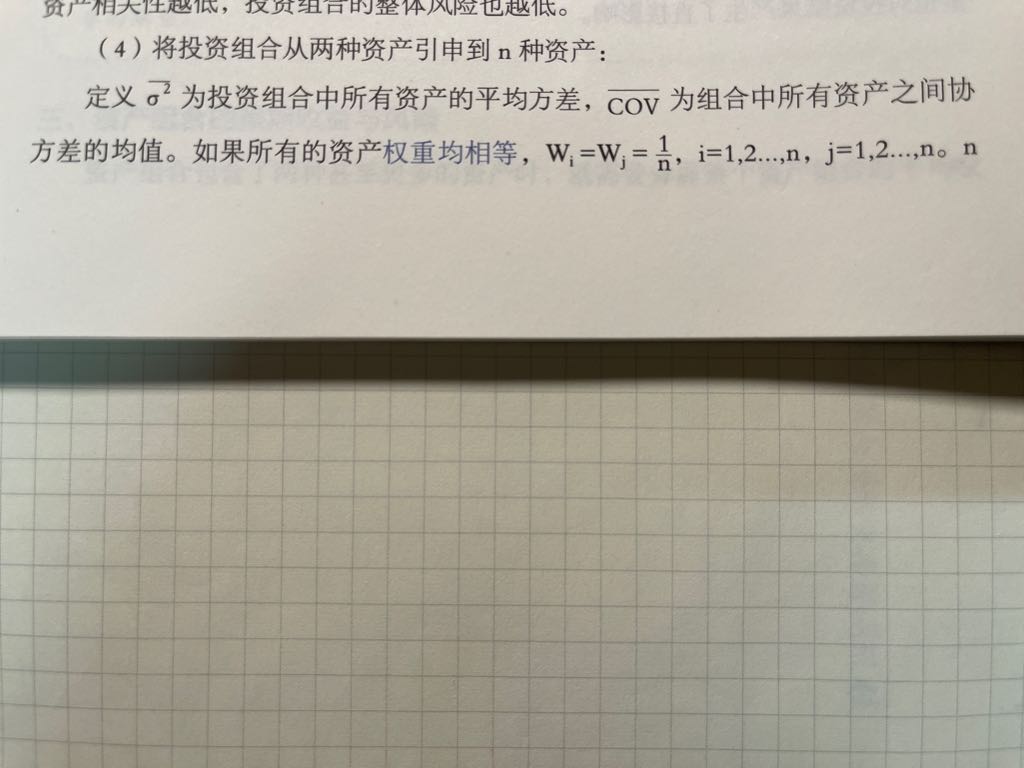 资产相关性越低，投资组合的整体风险也越低。
（4）将投资组合从两种资产引申到 n 种资产：
定义 σ̅² 为投资组合中所有资产的平均方差，C̅O̅V̅ 为组合中所有资产之间协
方差的均值。如果所有的资产权重均相等，Wᵢ=Wⱼ=1/n，i=1,2...,n，j=1,2...,n。n